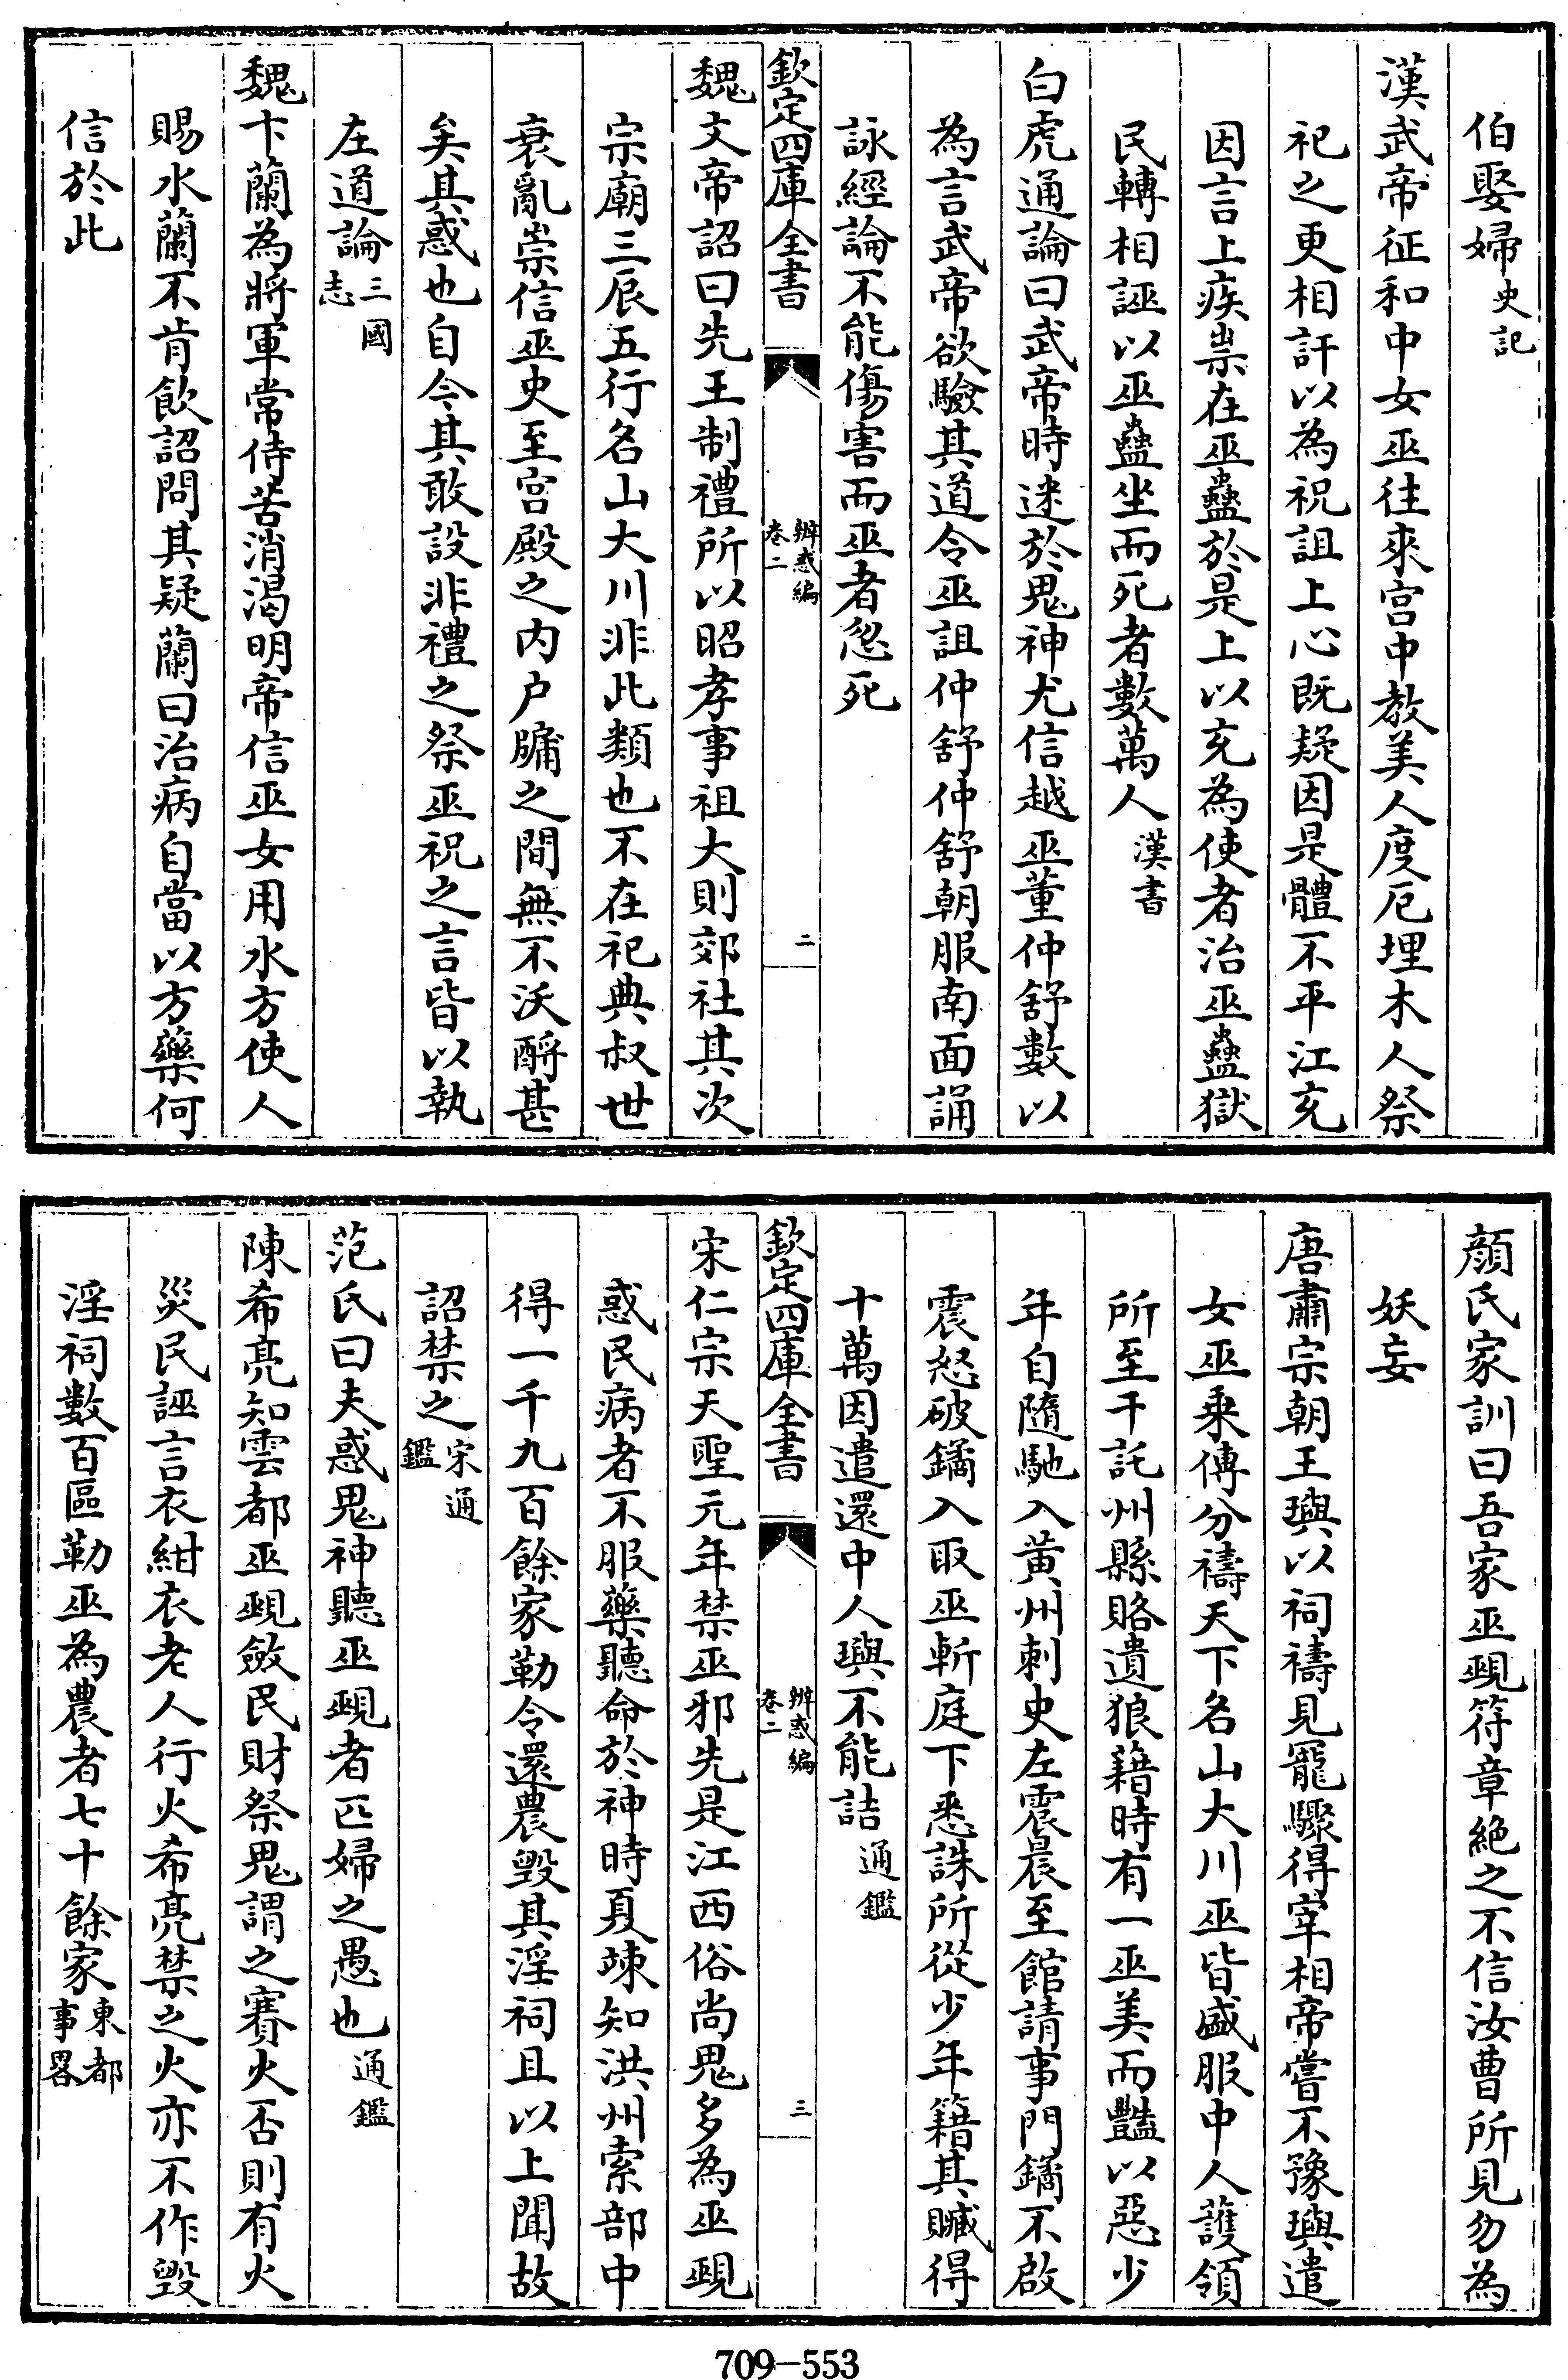 伯娶婦史記
漢武帝征和中女巫往來宮中教美人度厄埋木人祭
祀之更相訐以為祝詛上心既疑因是體不平江充
因言上疾祟在巫蠱於是上以充為使者治巫蠱獄
民轉相誣以巫蠱坐而死者數萬人漢書
白虎通論曰武帝時迷於鬼神尤信越巫董仲舒數以
為言武帝欲驗其道令巫詛仲舒仲舒朝服南面誦
詠經論不能傷害而巫者忽死
欽定四庫全書 辨惑編 卷二 二
魏文帝詔曰先王制禮所以昭孝事祖大則郊社其次
宗廟三辰五行名山大川非此類也不在祀典叔世
衰亂崇信巫史至宮殿之內戶牖之間無不沃酹甚
矣其惑也自今其敢設非禮之祭巫祝之言皆以執
左道論三國志
魏卞蘭為將軍常侍苦消渴明帝信巫女用水方使人
賜水蘭不肯飲詔問其疑蘭曰治病自當以方藥何
信於此
顏氏家訓曰吾家巫覡符章絶之不信汝曹所見勿為
妖妄
唐肅宗朝王璵以祠禱見寵驟得宰相帝嘗不豫璵遣
女巫乘傳分禱天下名山大川巫皆盛服中人護領
所至干託州縣賂遺狼籍時有一巫美而豔以惡少
年自隨馳入黃州刺史左震晨至館請事門鐍不啟
震怒破鐍入取巫斬庭下悉誅所從少年籍其贓得
十萬因遣還中人璵不能詰通鑑
欽定四庫全書 辨惑編 卷二 三
宋仁宗天聖元年禁巫邪先是江西俗尚鬼多為巫覡
惑民病者不服藥聽命於神時夏竦知洪州索部中
得一千九百餘家勒令還農毀其淫祠且以上聞故
詔禁之宋通鑑
范氏曰夫惑鬼神聽巫覡者匹婦之愚也通鑑
陳希亮知雩都巫覡斂民財祭鬼謂之賽火否則有火
災民誣言衣紺衣老人行火希亮禁之火亦不作毀
淫祠數百區勒巫為農者七十餘家東都事畧
709-553